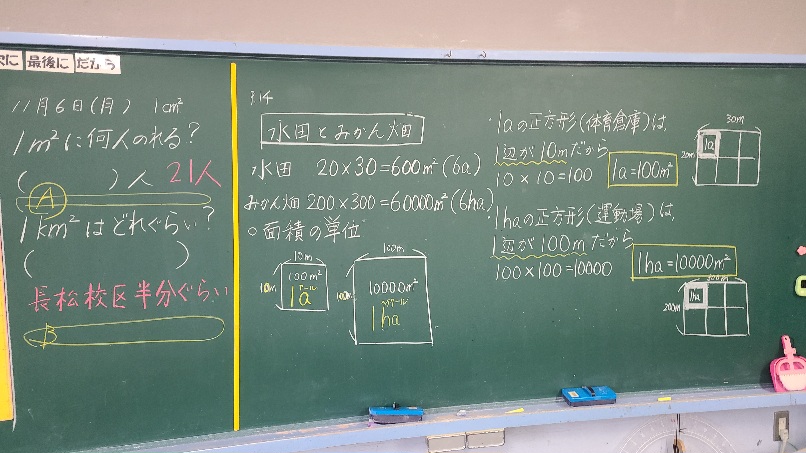 最後に
だから
11月6日(月) 1cm²
1m²に何人のれる?
( )人 21人
A
1km²はどれぐらい?
( )
長松校区半分ぐらい
B
水田とみかん畑
水田 20×30=600m²(6a)
みかん畑 200×300=60000m²(6ha)
○面積の単位
10m
100m²
10m
1a
アール
100m
10000m²
100m
1ha
ヘクタール
・1aの正方形(体育倉庫)は、
1辺が10mだから
10×10=100
1a=100m²
30m
20m
1a
・1haの正方形(運動場)は、
1辺が100mだから
100×100=10000
1ha=10000m²
200m
1ha